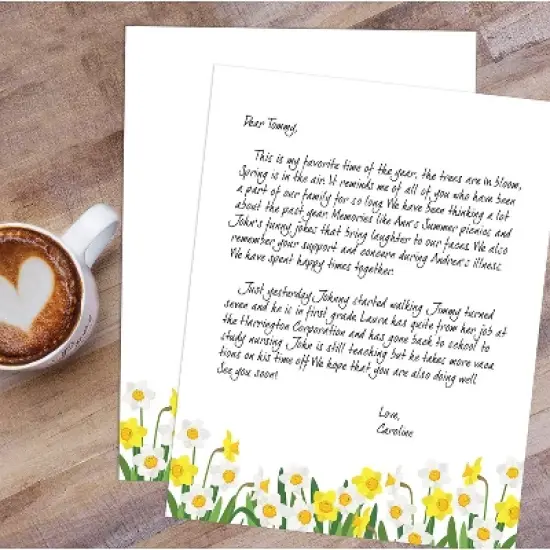 Dear Tommy,
This is my favorite time of the year, the trees are in bloom,
Spring is in the air. It reminds me of all of you who have been
a part of our family for so long. We have been thinking a lot
about the past year. Memories like Ann's Summer picnics and
John's funny jokes that bring laughter to our faces. We also
remember your support and concern during Andrea's illness.
We have spent happy times together.
Just yesterday Johnny started walking. Jimmy turned
seven and he is in first grade. Laura has quite from her job at
the Harrington Corporation and has gone back to school to
study nursing. John is still teaching but he takes more vaca
tions on his time off. We hope that you are also doing well.
See you soon!
Love,
Caroline